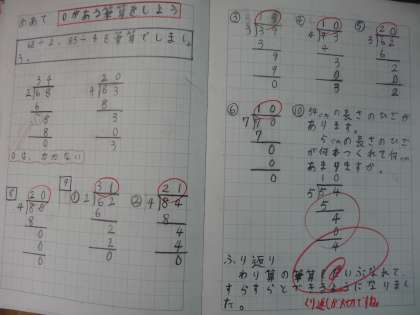 めあて 0がある筆算をしよう
68÷2、83÷4を筆算でしましょう。
34
2)68
6
8
8
0
20
4)83
8
3
0
3
0は、かかない
8
20
4)80
8
0
0
0
9
① 31
2)62
6
2
2
0
② 21
4)84
8
4
4
0
③ 13
3)39
3
9
9
0
④ 10
4)43
4
3
0
3
⑤ 20
3)62
6
2
0
2
⑥ 10
7)70
7
0
0
0
⑩ 54cmの長さのひごが
あります。
5cmの長さのひご
が何本つくれて何cm
あまりますか。
10
5)54
5
4
0
4
ふり返り
わり算の筆算を使いなれて、
すらすらとできるようになりまし
た。
くり返しが大切ですね